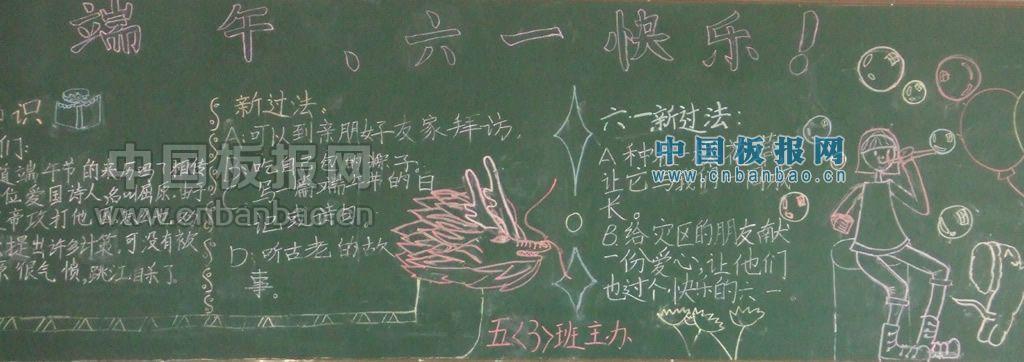 端午、六一快乐!
识
们:
道端午节的来历吗?相传
位爱国诗人名叫屈原.
帝攻打他国
提出许多计策.可没有被
很气愤,跳江自杀了。
新过法:
A:可以到亲朋好友家拜访.
吃自己包的粽子.
写一篇端午节的日
D:听古老的故
事。
六一新过法:
A.种
让它与我们一同成
长。
B.给灾区的朋友献
一份爱心,让他们
也过个快乐的六一
五<3>班主办
中国板报网
www.cnbanbao.cn
中国板报网
www.cnbanbao.cn